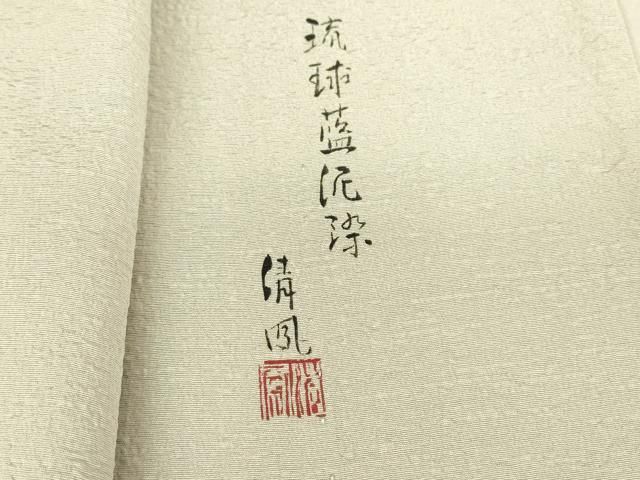 琉球藍泥染
清凰